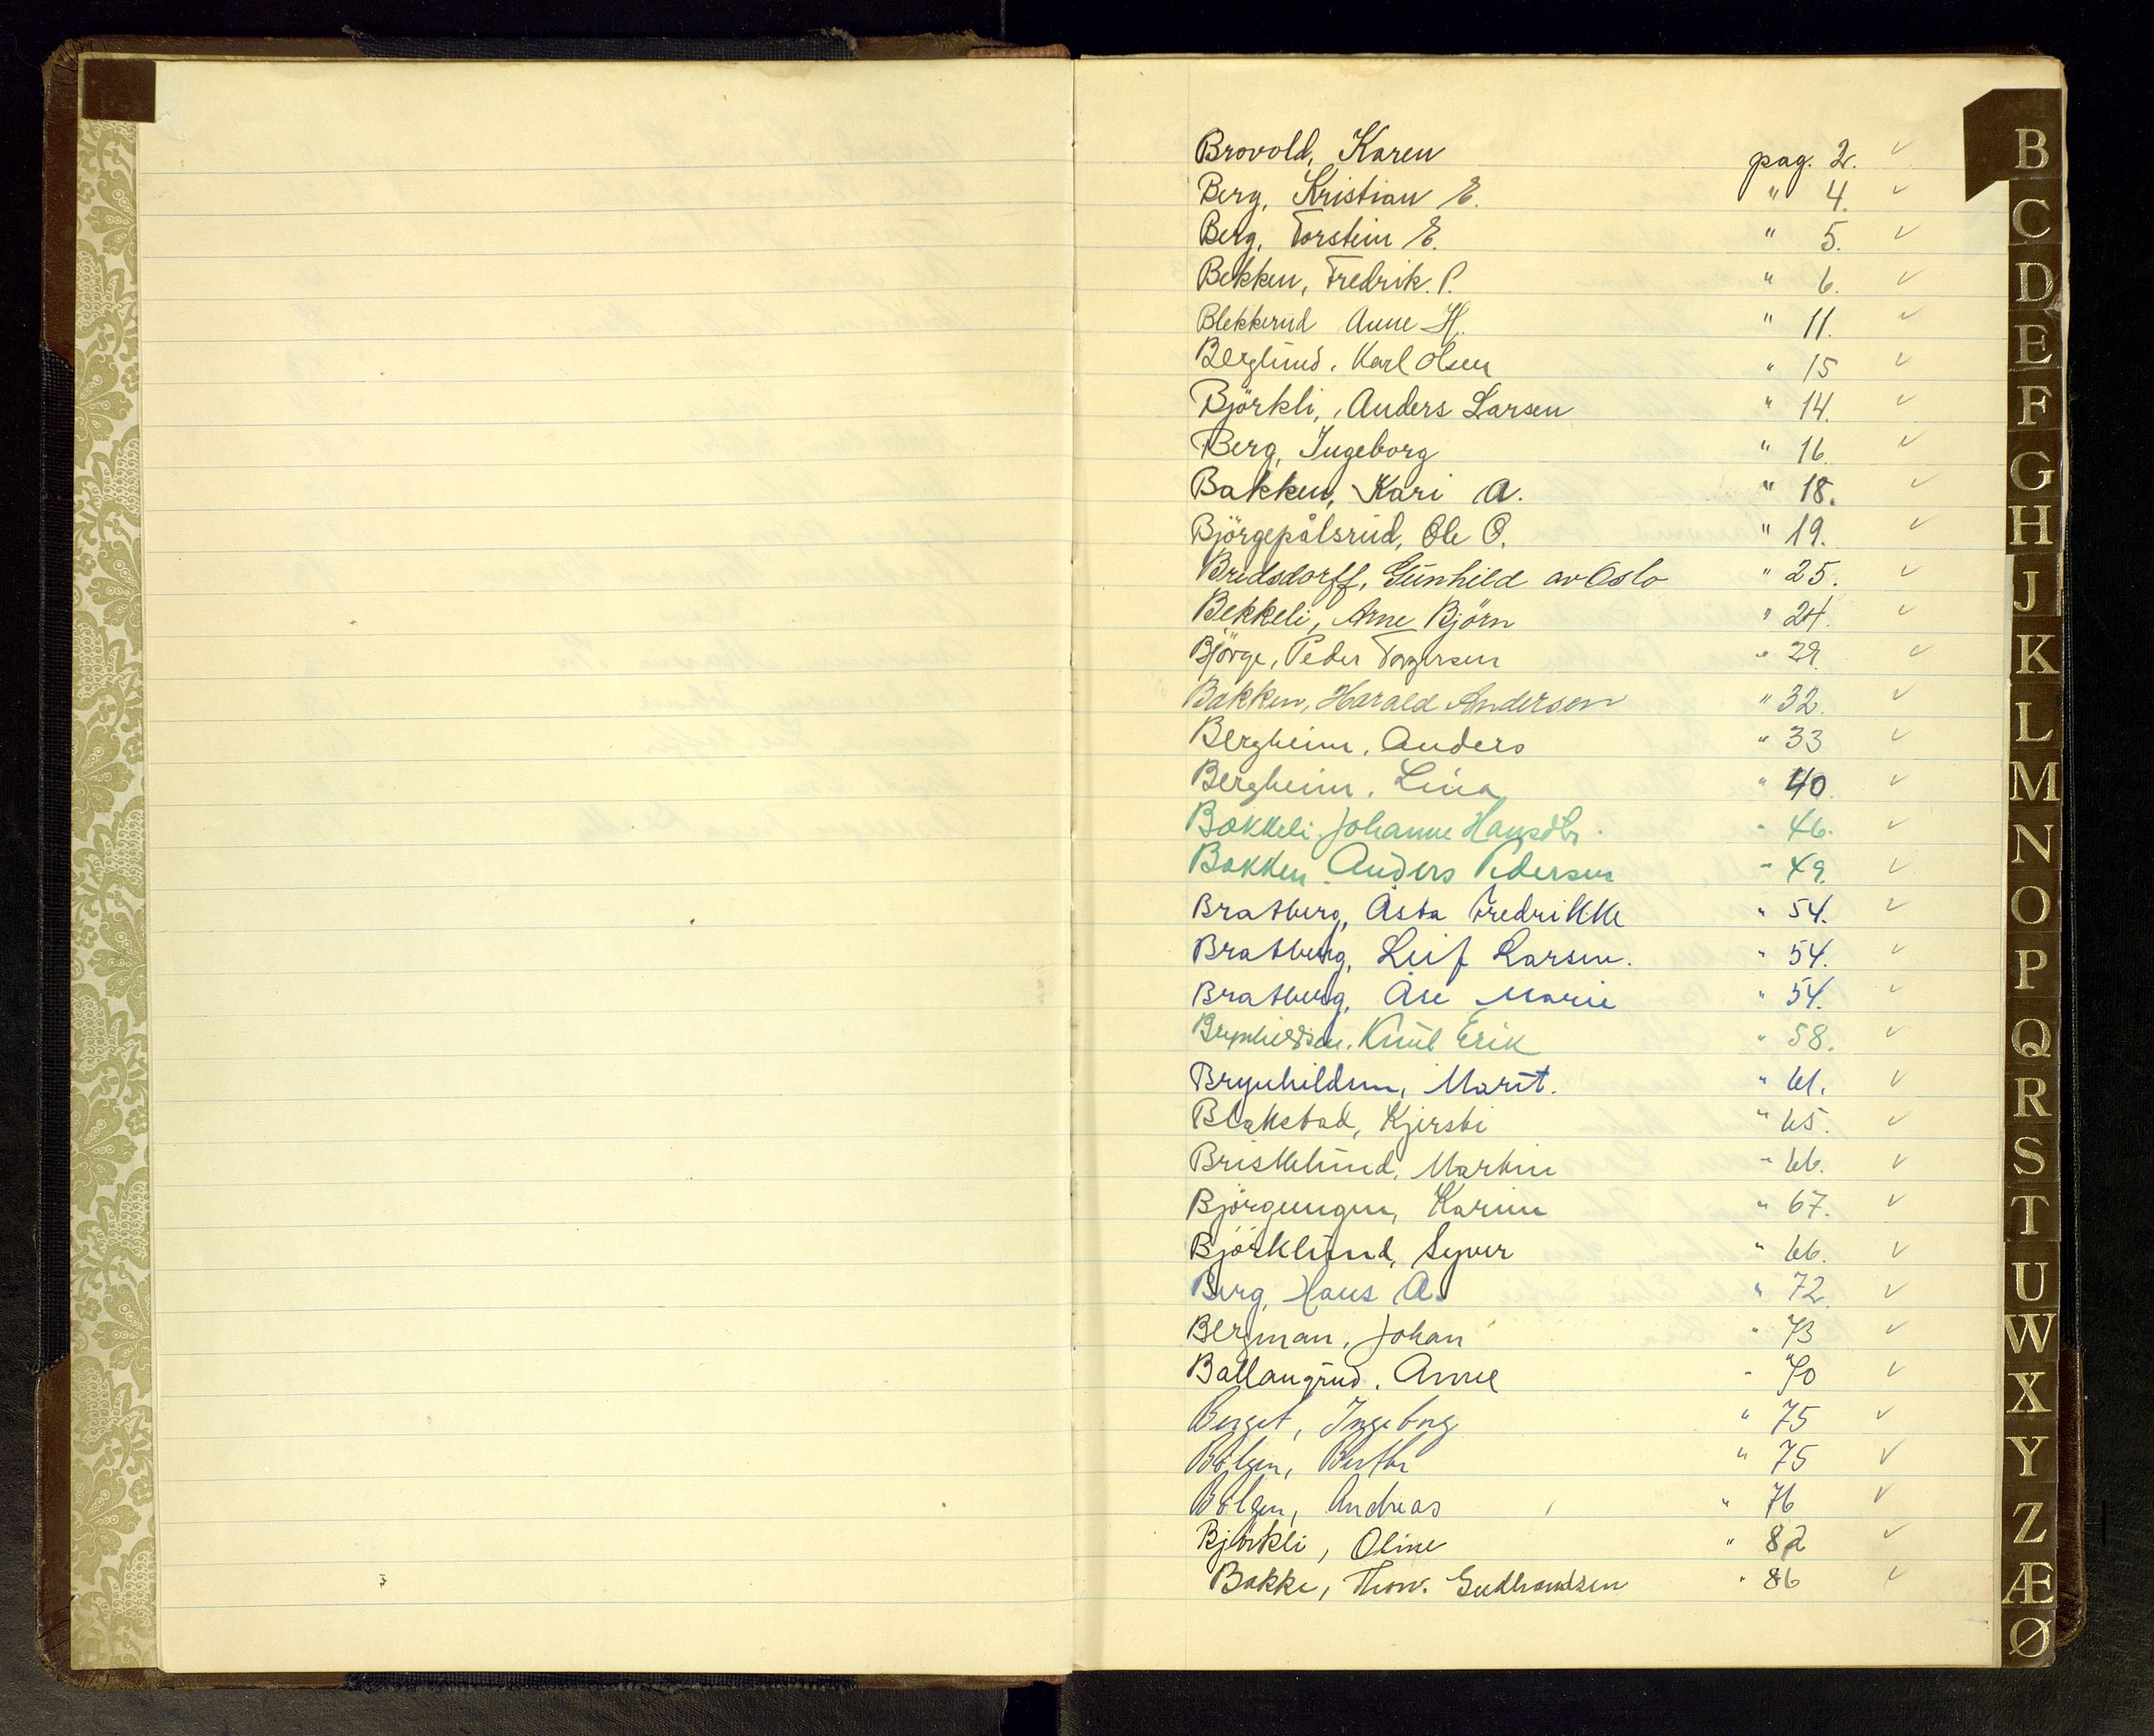 Brovold, Karen pag. 2. ✓
Berg, Kristian E. " 4. ✓
Berg, Torstein E. " 5. ✓
Bekken, Fredrik. P. " 6. ✓
Blekkerud Anne H. " 11. ✓
Berglund, Karl Olsen " 15 ✓
Björkli, Anders Larsen " 14. ✓
Berg, Ingeborg " 16. ✓
Bakken, Kari A. " 18. ✓
Björgepålsrud, Ole O. " 19. ✓
Bredsdorff, Gunhild av Oslo " 25. ✓
Bekkeli, Arne Björn " 24. ✓
Björge, Peder Torgersen " 29. ✓
Bakken, Harald Andersen " 32. ✓
Bergheim, Anders " 33 ✓
Bergheim, Lina " 40. ✓
Bakkeli, Johanne Hansdtr. " 46. ✓
Bakken Anders Pedersen " 49. ✓
Bratberg, Åsta Fredrikke " 54. ✓
Bratberg, Leif Larsen. " 54. ✓
Bratberg, Åse Marie " 54. ✓
Brynhildsen. Knut Erik " 58. ✓
Brynhildsen, Marit. " 61. ✓
Blakstad, Kjersti " 65. ✓
Briskelund, Martin " 66. ✓
Björgeengen, Karine " 67. ✓
Björklund, Syver " 66. ✓
Berg, Hans A. " 72. ✓
Bergman, Johan " 73 ✓
Ballangrud. Anne " 70 ✓
Berget, Ingeborg " 75 ✓
Bølgen, Berthe " 75 ✓
Bølgen, Andreas " 76 ✓
Björkli, Oline " 82 ✓
Bakke, Thorv. Gudbrandsen " 86 ✓
B
C
D
E
F
G
H
J
K
L
M
N
O
P
Q
R
S
T
U
W
X
Y
Z
Æ
Ø